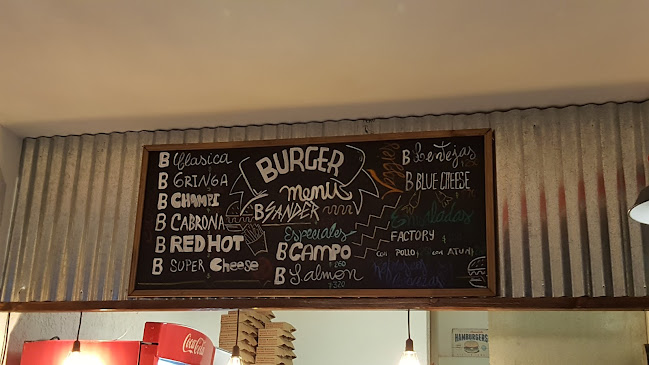 B Clasica
B GRINGA
B CHAMPI
B CABRONA
B RED HOT
B SUPER Cheese
BURGER
menú
B SANDER
Especiales
B CAMPO
$260
B Salmón
$320
Veggies
B Lentejas
B BLUE CHEESE
Ensaladas
FACTORY
con POLLO con ATUN
Coca-Cola
HAMBURGERS